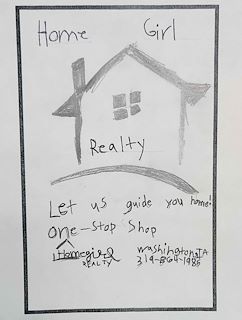 Home Girl
Realty
Let us guide you home!
one-Stop Shop
Homegirl washington,IA
REALTY 319-864-1985